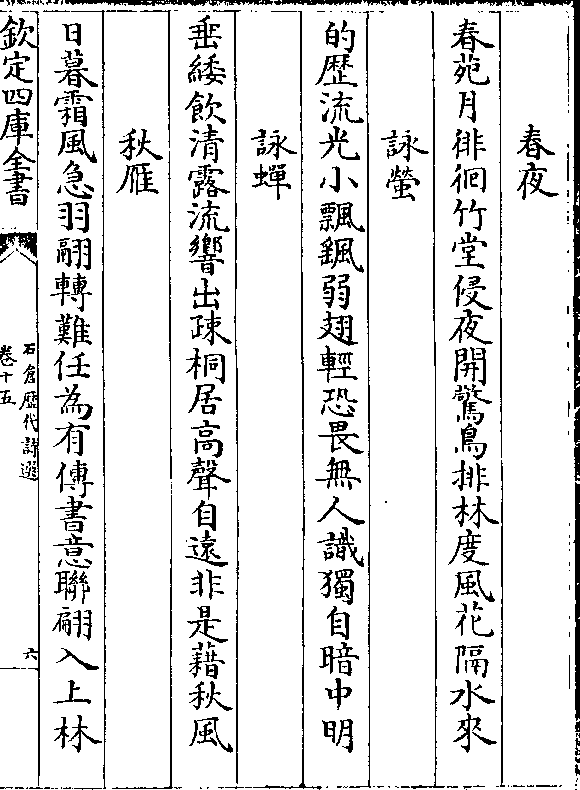 春夜
春苑月徘徊竹堂侵夜開驚鳥排林度風花隔水來
詠螢
的歴流光小飄颻弱翅輕恐畏無人識獨自暗中明
詠蟬
垂緌飲清露流響出疎桐居高聲自遠非是藉秋風
秋雁
日暮霜風急羽翮轉難任為有傳書意聯翩入上林
欽定四庫全書
石倉歴代詩選
卷十五
六